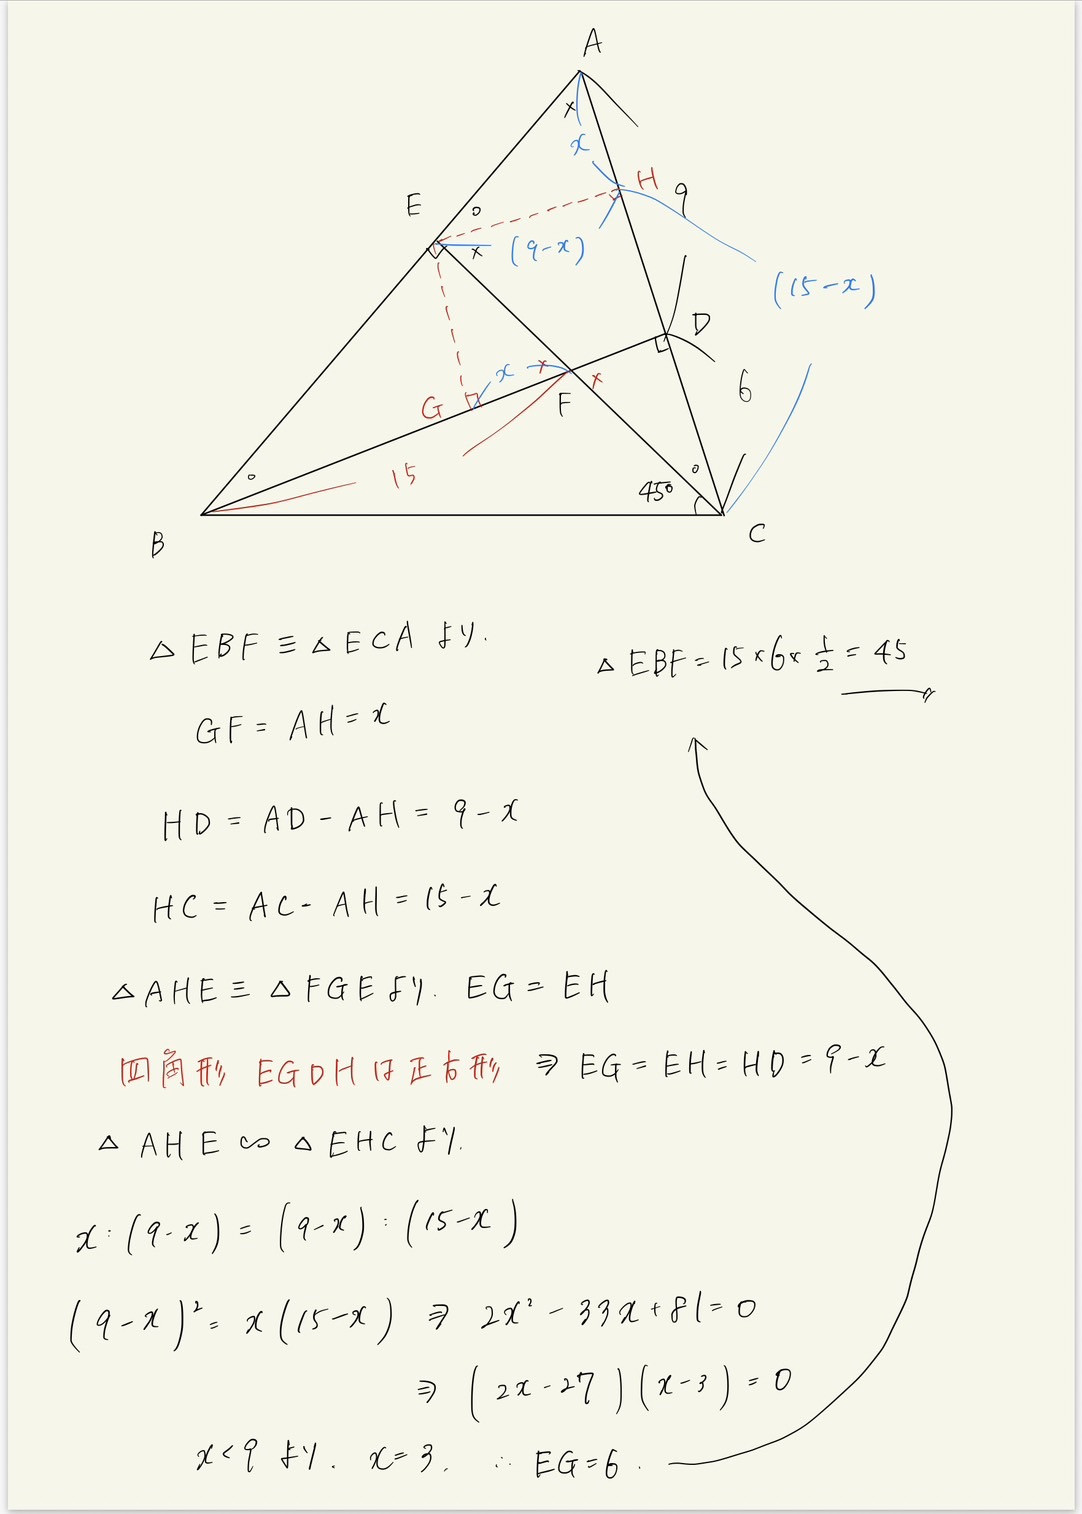 A
×
x
H
9
E
○
×
(9-x)
(15-x)
D
x
×
×
G
F
6
○
15
○
45°
B
C
△EBF≡△ECAより.
△EBF=15×6×1/2=45
GF=AH=x
HD=AD-AH=9-x
HC=AC-AH=15-x
△AHE≡△FGEより. EG=EH
四角形 EGDHは正方形 ⇒ EG=EH=HD=9-x
△AHE∽△EHCより.
x:(9-x)=(9-x):(15-x)
(9-x)²=x(15-x) ⇒ 2x²-33x+81=0
⇒ (2x-27)(x-3)=0
x<9より. x=3. ∴ EG=6.